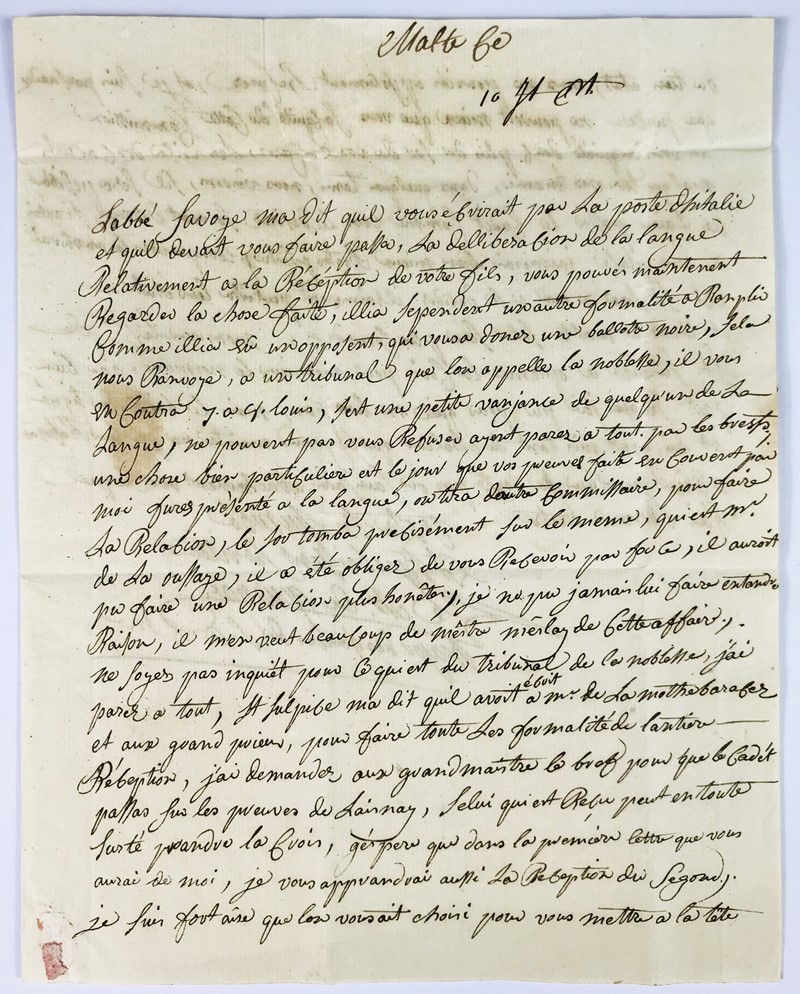 Malte Ce
10
L'abbé Savoye ma dit quil vous écrirait par La poste dhitalie
et quil devait vous faire passa, La delliberation de la langue
Relativement a la Réception de votre fils, vous pouvés maintenent
Regarder la chose faite, illia sependent un autre formalité a Ranplir
Comme illia eu un opposent, qui vous a donez une ballote noire, sela
nous Ranvoye, a un tribunal que lon appelle la noblesse, il vous
en Contra 3 a 4 louis, sest une petite vanjance de quelqu'un de La
Langue, ne pouvent pas vous Refuser ayent parez a tout par les brefs,
une chose bien particuliere est le jour que vos preuves faite en Couvent par
moi fures présenté a la langue, on tira dautre Commissaire, pour faire
La Relation, le sor tomba precisément sur le meme, qui est mr.
de La oussaye, il a été obligez de vous Recevoir par force, il auroit
pu faire une Relation plus honête, je ne pu jamais lui faire entandre
Raison, il men veut beaucoup de mêstre mêslay de Cette affair,.
ne soyes pas inquiét pour ce qui est du tribunal de la noblesse, j'ai
parez a tout, St sulpice ma dit quil avoit écrit a mr. de Lamothe baracez
et aux grand prieur, pour faire toute Les formalité de lantiere
Réception, j'ai demandez aux grand maitre le bref pour que le Cadét
passas sur les preuves de Laisnay, Selui qui est Reçu peut en toute
surté prandre la Croix, géspere que dans la premiére lettre que vous
aurai de moi, je vous apprandrai aussi La Reception du Segond,.
je suis fort aîse que lon vous ait choisi pour vous mettre a la tête